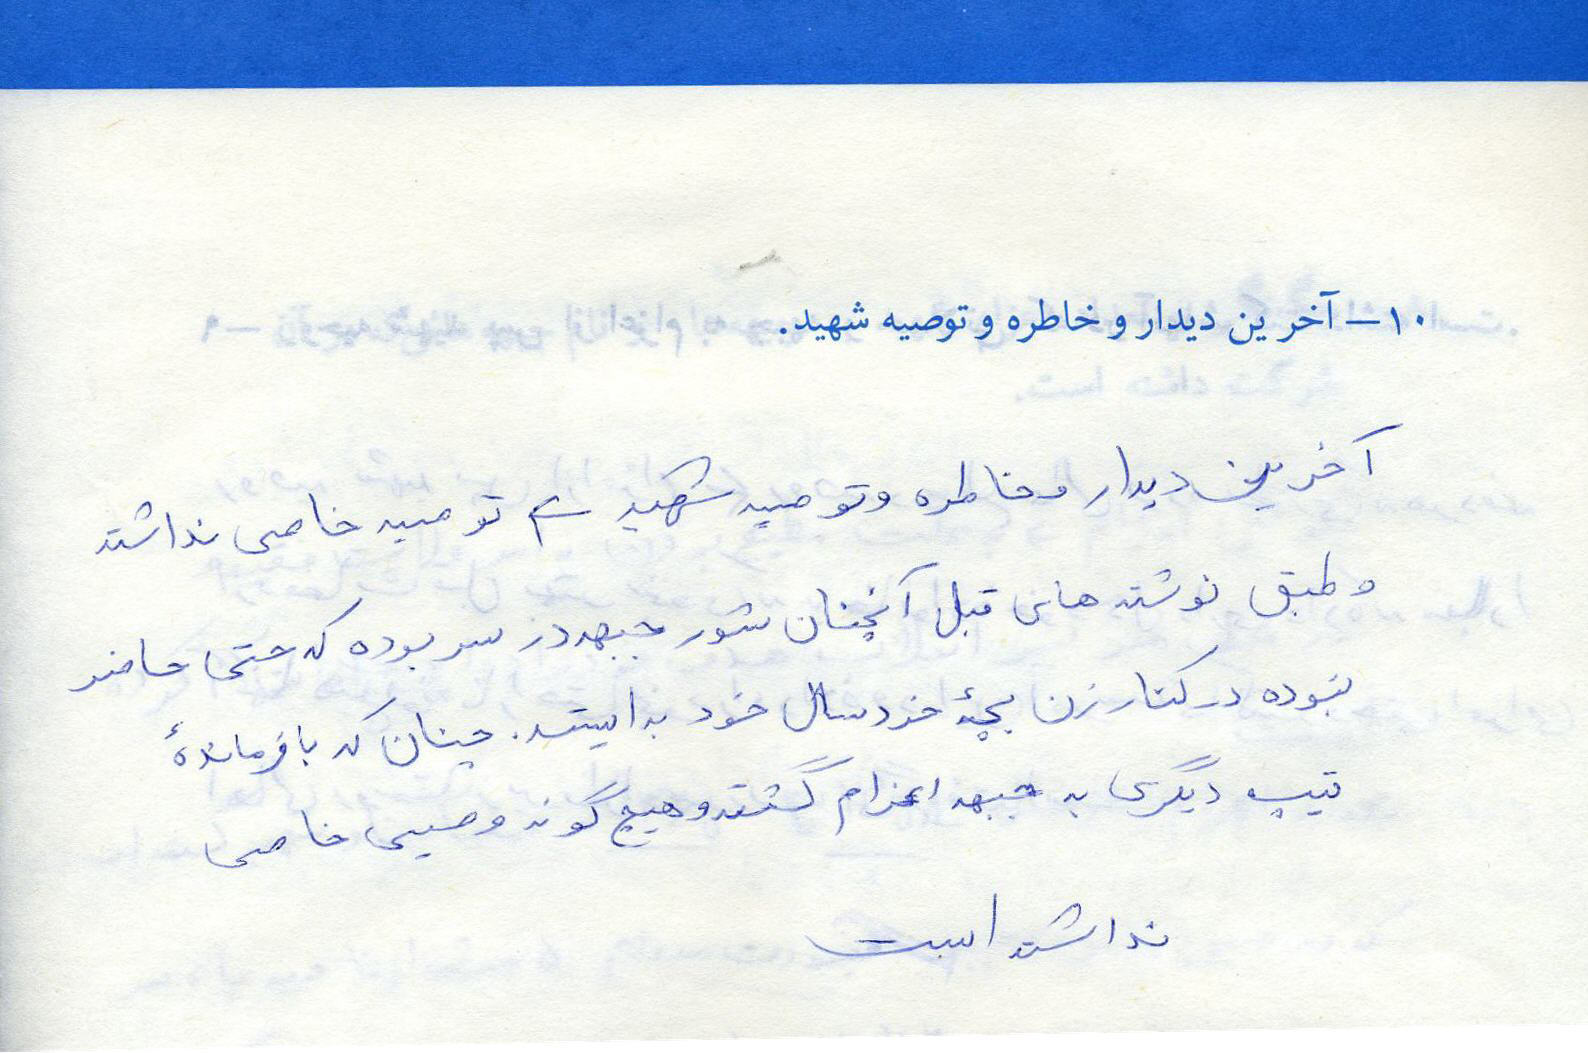 ۱۰ــ آخرین دیدار و خاطره و توصیه شهید.
آخرین دیدار و خاطره و توصیه شهید ــ توصیه خاصی نداشته
و طبق نوشته های قبل آنچنان شور جبهه در سر بوده که حتی حاضر
نبوده در کنار زن بچهٔ خردسال خود بایستد. چنان که با فرماندهٔ
تیپ دیگری به جبهه اعزام گشته و هیچ گونه وصیی خاصی
نداشته است